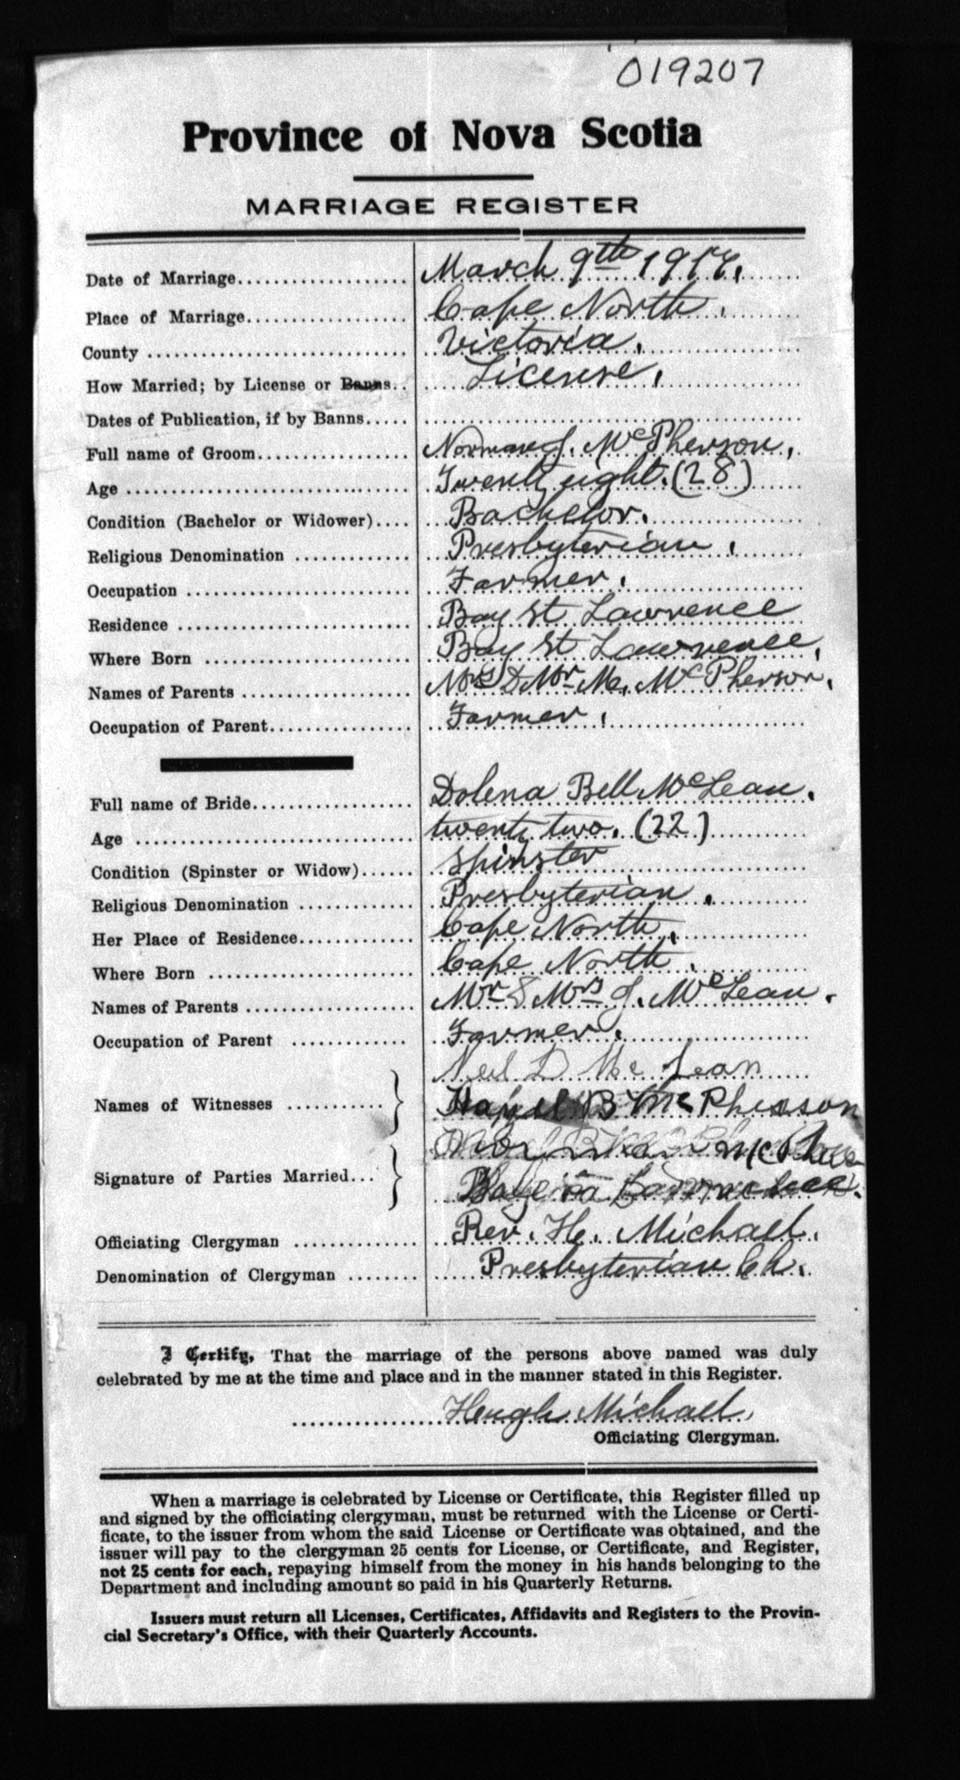 019207
Province of Nova Scotia
MARRIAGE REGISTER
Date of Marriage................... March 9th
Place of Marriage.................. Cape North.
County ............................ Victoria.
How Married; by License or Banns.. License.
Dates of Publication, if by Banns.....
Full name of Groom................ Norman J. McPherson.
Age ............................... Twenty eight. (28)
Condition (Bachelor or Widower).... Bachelor.
Religious Denomination ............. Presbyterian.
Occupation ......................... Farmer.
Residence .......................... Bay St Lawrence
Where Born ........................ Bay St Lawrence.
Names of Parents .................. Mrs & Mr M. McPherson.
Occupation of Parent................ Farmer.
Full name of Bride.................. Dolena Bell McLean.
Age ................................ twenty two. (22)
Condition (Spinster or Widow)...... Spinster
Religious Denomination ............. Presbyterian.
Her Place of Residence............. Cape North.
Where Born ........................ Cape North.
Names of Parents .................. Mr & Mrs J. McLean.
Occupation of Parent ............. Farmer.
Neil D McLean
Names of Witnesses ...........
B McPherson
Signature of Parties Married...
Officiating Clergyman ............. Rev. H. Michael.
Denomination of Clergyman ........ Presbyterian Ch.
I Certify, That the marriage of the persons above named was duly
celebrated by me at the time and place and in the manner stated in this Register.
Hugh Michael.
Officiating Clergyman.
When a marriage is celebrated by License or Certificate, this Register filled up
and signed by the officiating clergyman, must be returned with the License or Certi-
ficate, to the issuer from whom the said License or Certificate was obtained, and the
issuer will pay to the clergyman 25 cents for License, or Certificate, and Register,
not 25 cents for each, repaying himself from the money in his hands belonging to the
Department and including amount so paid in his Quarterly Returns.
Issuers must return all Licenses, Certificates, Affidavits and Registers to the Provin-
cial Secretary's Office, with their Quarterly Accounts.